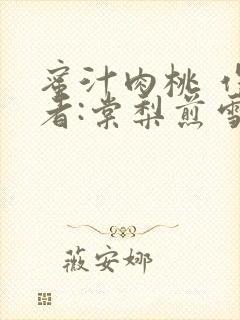 蜜汁肉桃 作
者:棠梨煎雪
薇安娜